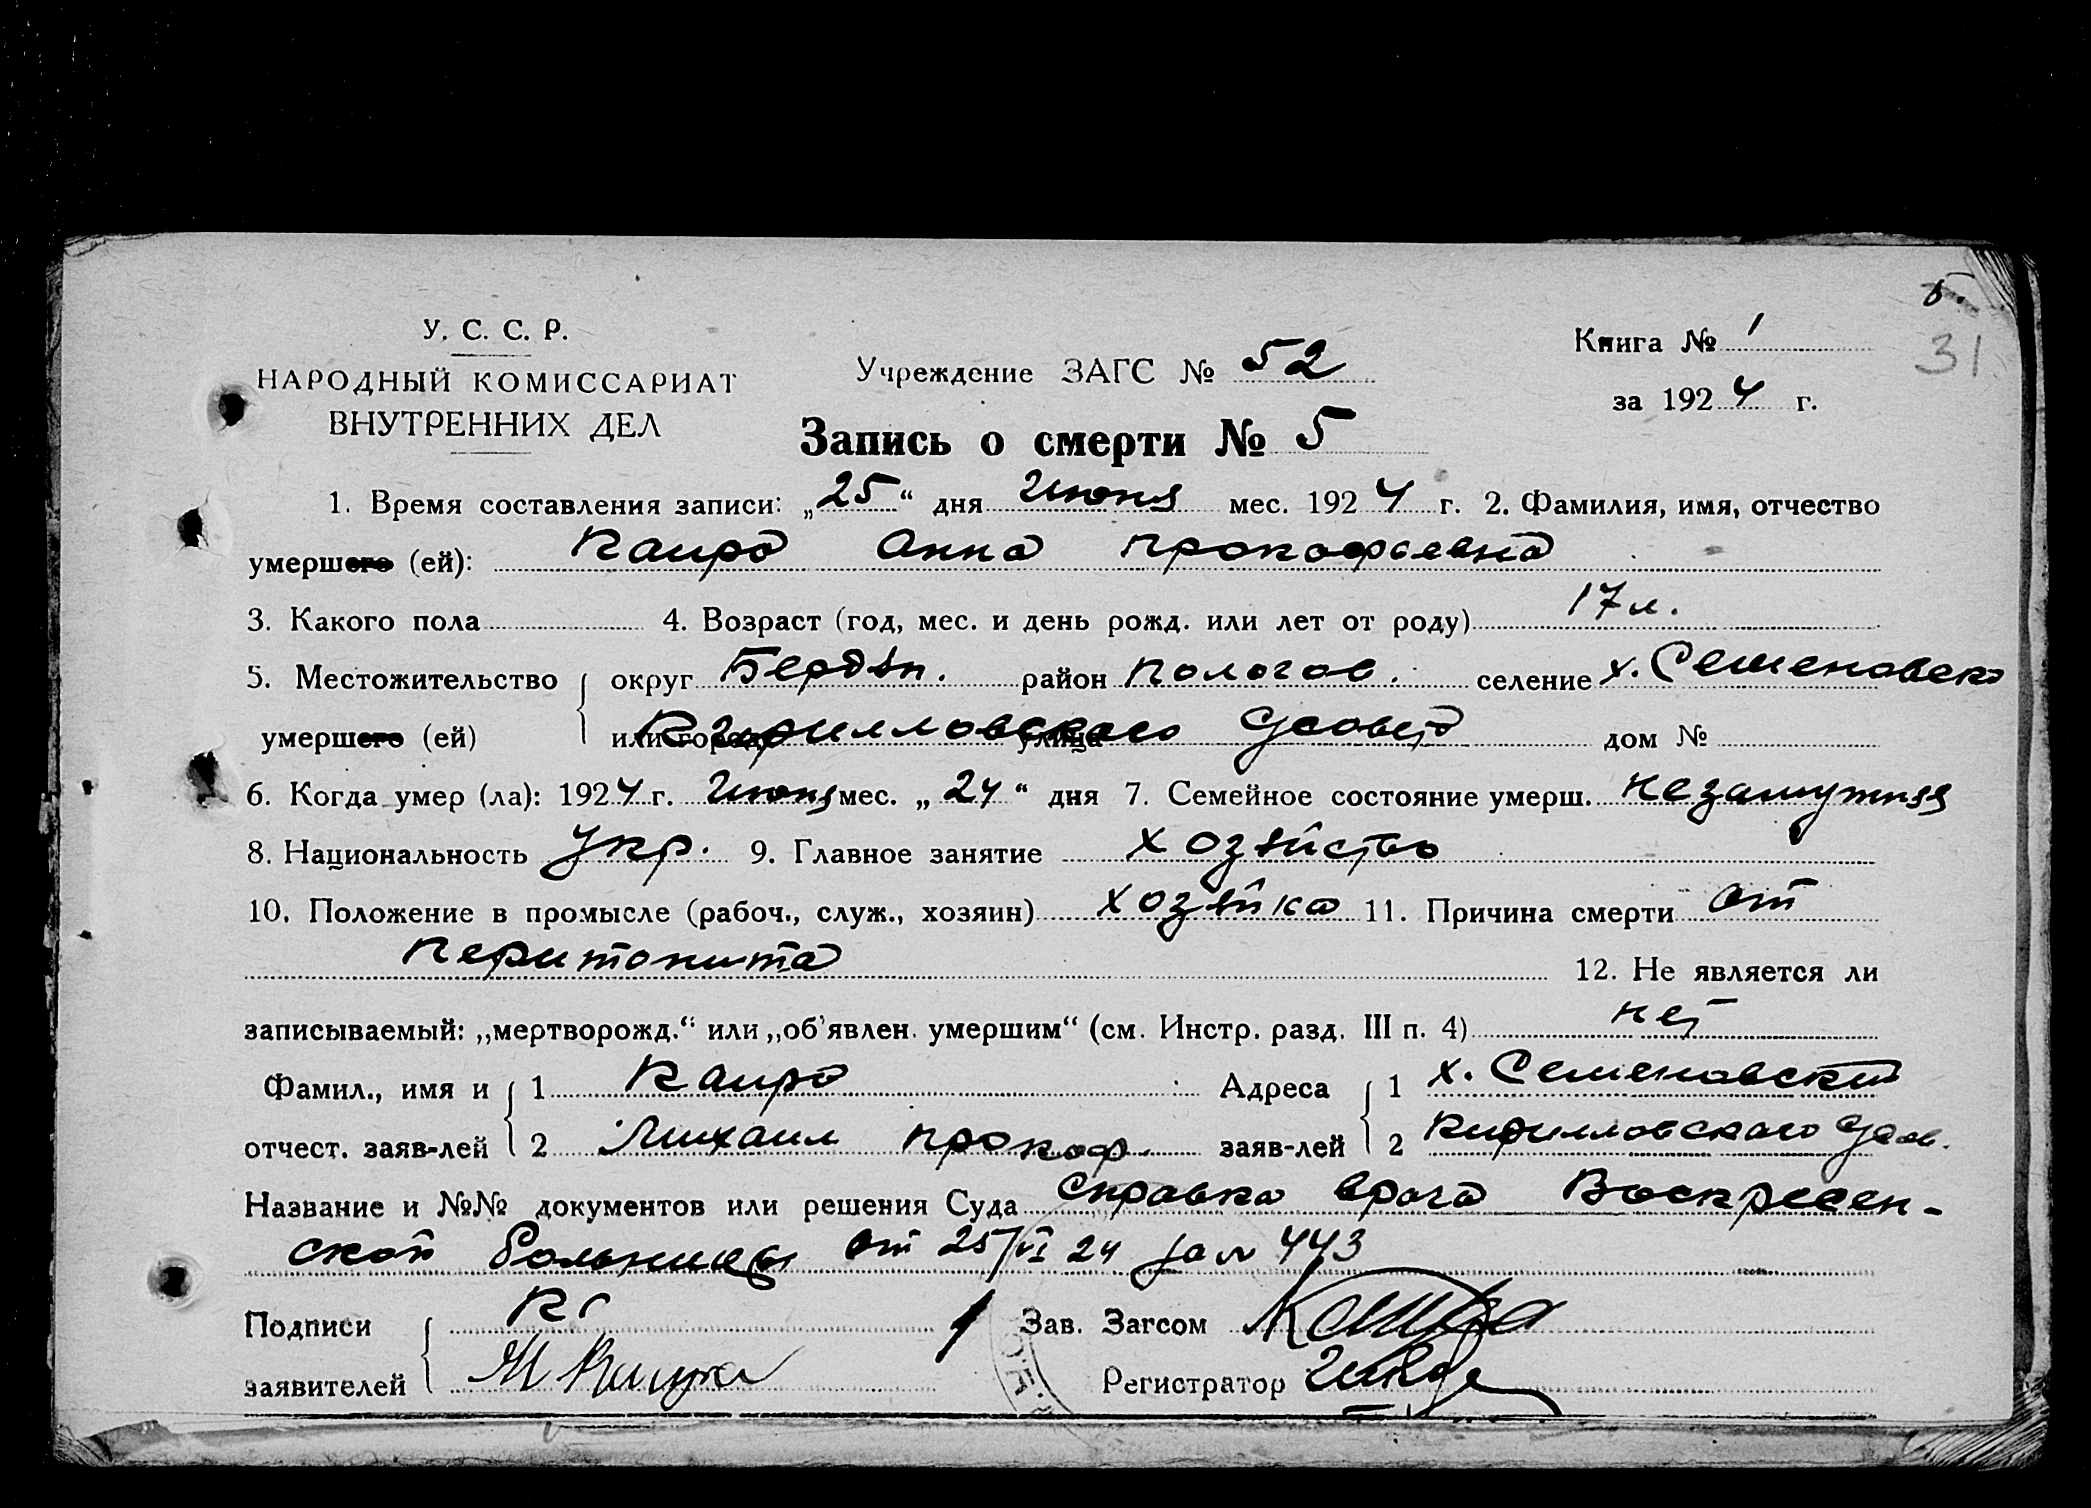 5.
31.
У. С. С. Р.
НАРОДНЫЙ КОМИССАРИАТ
ВНУТРЕННИХ ДЕЛ
Учреждение ЗАГС № 52
Книга № 1
за 1924 г.
Запись о смерти № 5
1. Время составления записи: „25“ дня Июня мес. 1924 г. 2. Фамилия, имя, отчество
умершего (ей): Каира Анна Прокофьевна
3. Какого пола 4. Возраст (год, мес. и день рожд. или лет от роду) 17 л.
5. Местожительство округ Бердян. район Пологов. селение х. Семеновско
умершего (ей) или город Кирилловского улица Ссовета дом №
6. Когда умер (ла): 1924 г. Июня мес. „24“ дня 7. Семейное состояние умерш. незамужняя
8. Национальность Укр. 9. Главное занятие хозяйство
10. Положение в промысле (рабоч., служ., хозяин) хозяйка 11. Причина смерти от
перитонита 12. Не является ли
записываемый: „мертворожд.“ или „об'явлен. умершим“ (см. Инстр. разд. III п. 4) нет
Фамил., имя и 1 Каира Адреса 1 х. Семеновский
отчест. заяв-лей 2 Михаил Прокоф. заяв-лей 2 Кирилловского Ссов.
Название и №№ документов или решения Суда Справка врача Воскресен-
ской больницы от 25/VI 24 за № 443
Подписи Зав. Загсом
заявителей М Каира Регистратор